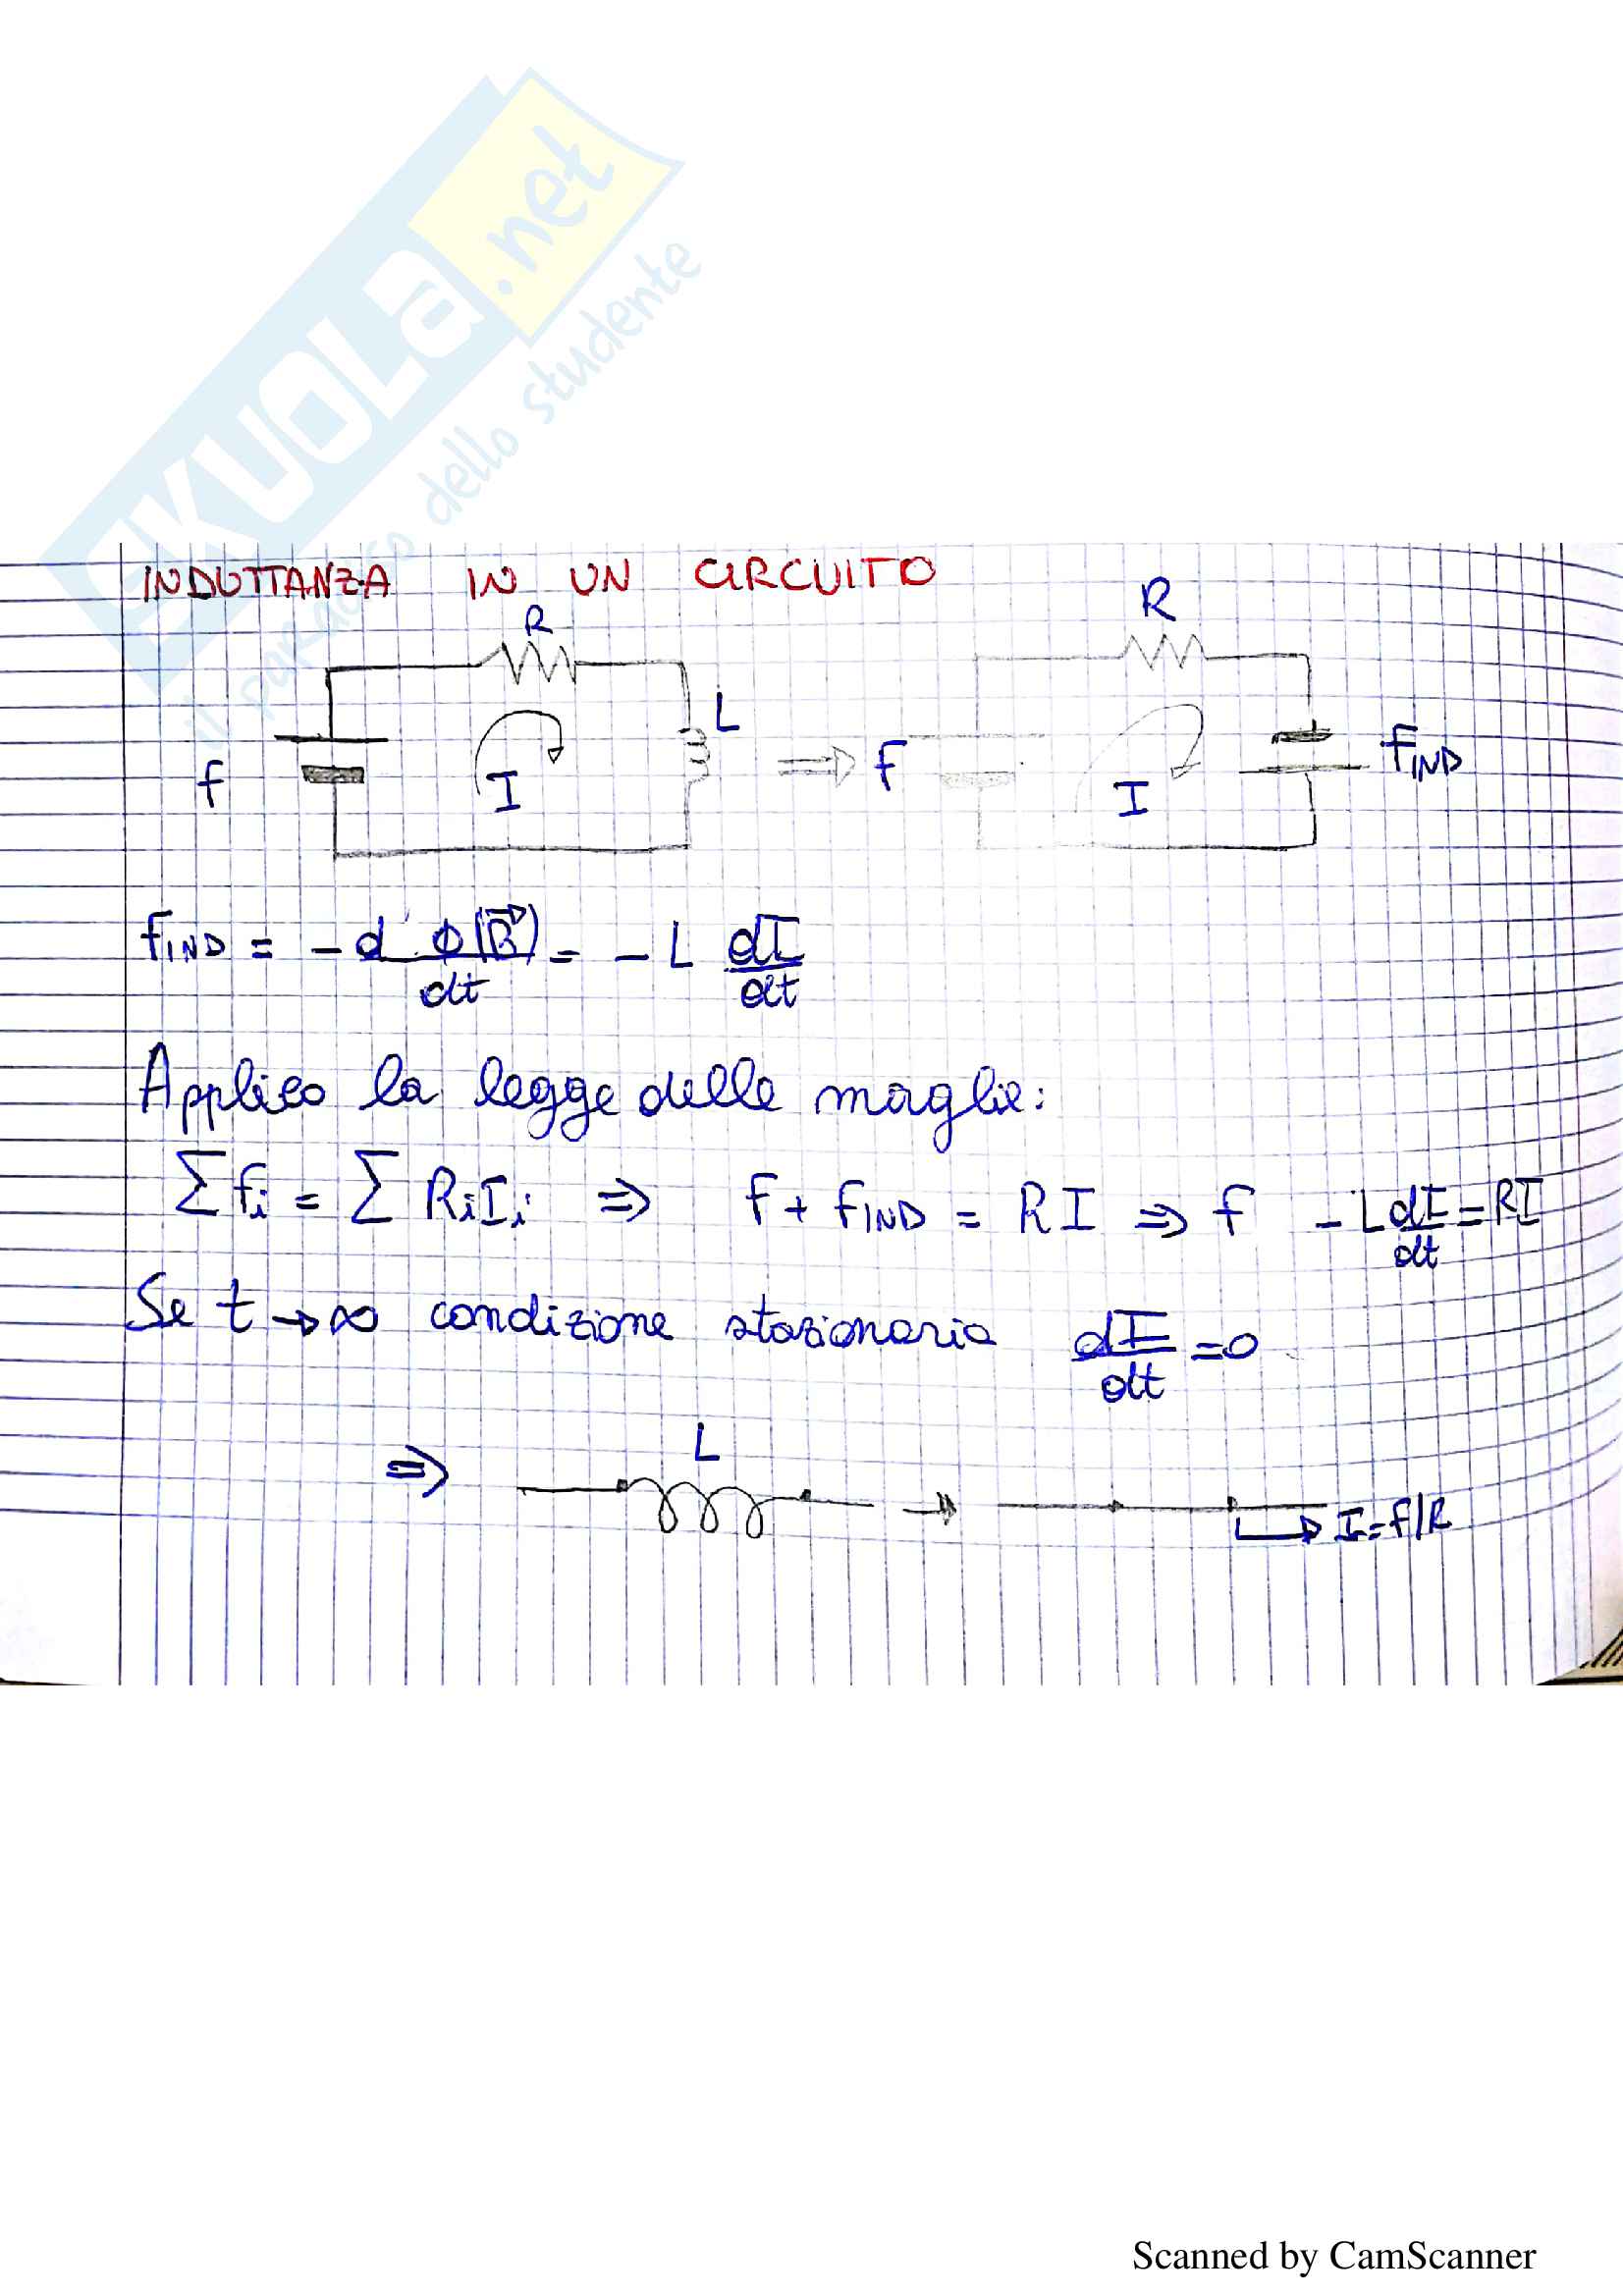 SKUOLA.net
il paradiso dello studente
INDUTTANZA IN UN CIRCUITO
R
L
f
I
⇒
R
f
I
fIND
fIND = - d Φ(B⃗)/dt = - L dI/dt
Applico la legge delle maglie:
Σ fi = Σ RiIi ⇒ f + fIND = RI ⇒ f - L dI/dt = RI
Se t → ∞ condizione stazionaria dI/dt = 0
⇒ L → I = f/R
Scanned by CamScanner